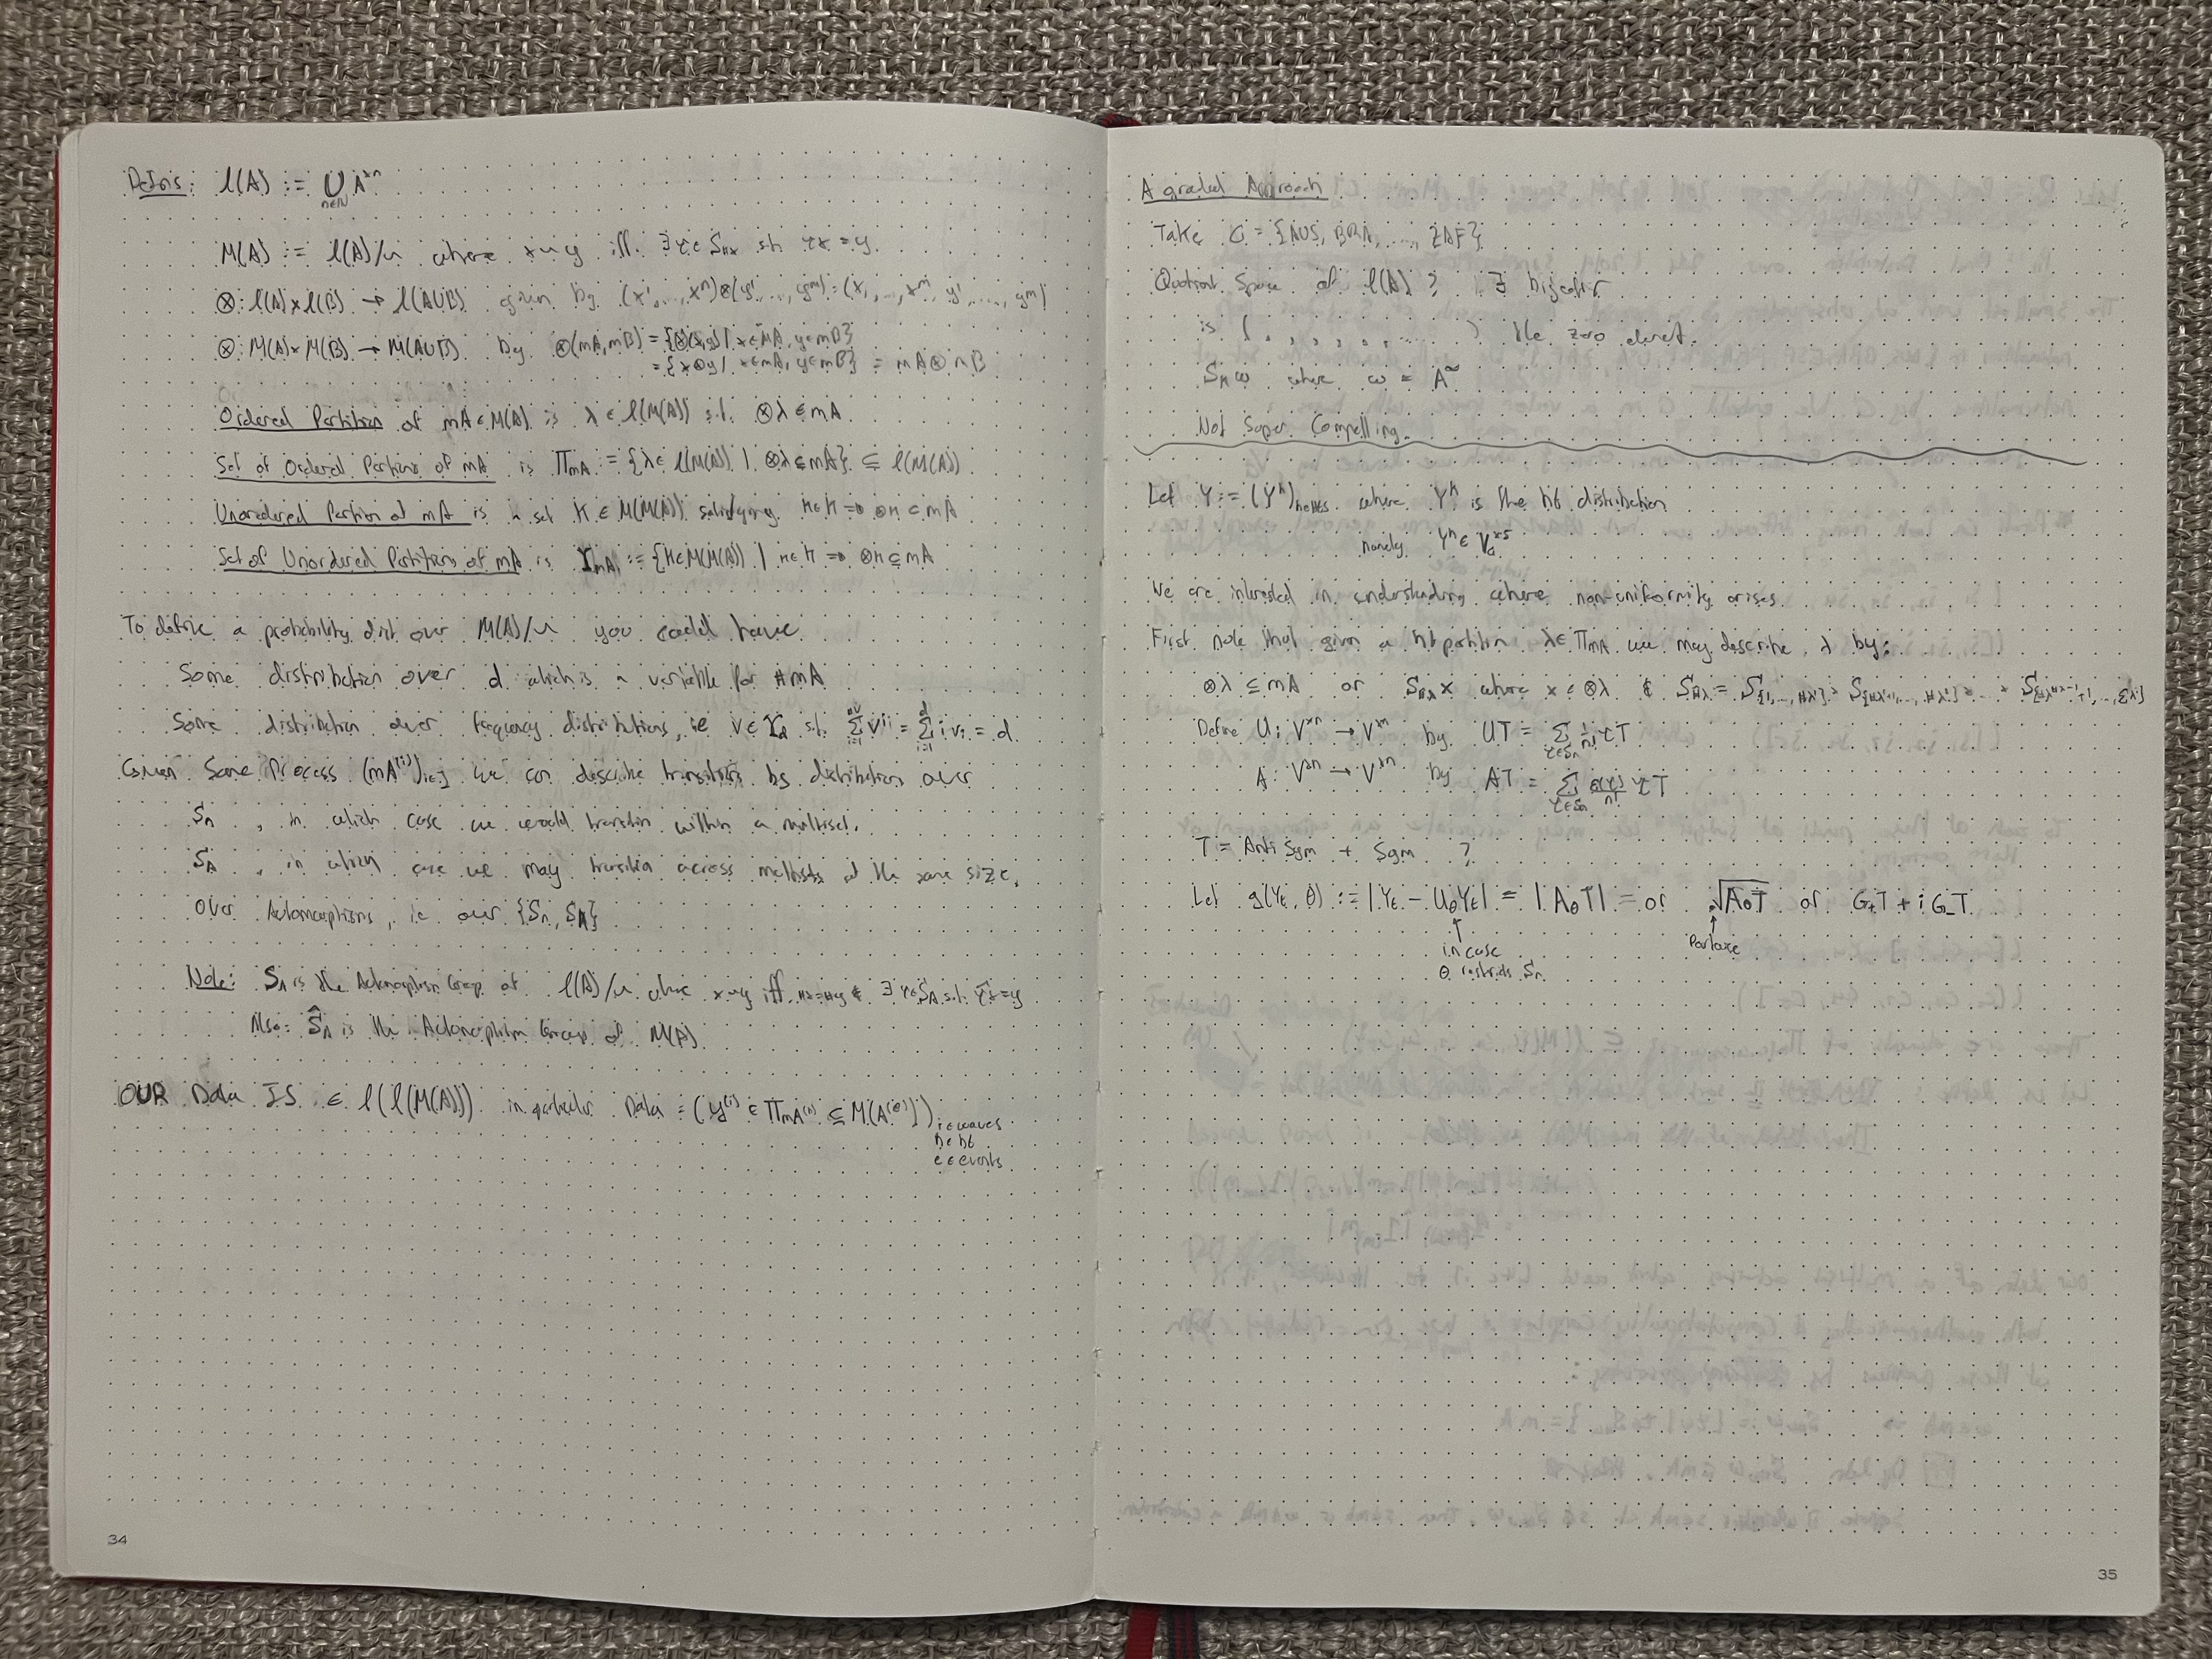 Defns: l(A) := ⋃_{n∈ℕ} A^{×n}
M(A) := l(A)/~ where x~y iff ∃ τ∈S_{#x} st τx = y.
⊗: l(A)×l(B) → l(A∪B) given by (x¹,...,xⁿ)⊗(y¹,...,yᵐ) = (x¹,...,xⁿ,y¹,...,yᵐ)
⊗: M(A)×M(B) → M(A∪B) by ⊗(mA,mB) = {⊗(x,y) | x∈mA, y∈mB}
= {x⊗y | x∈mA, y∈mB} = mA⊗mB
Ordered Partition of mA∈M(A) is λ∈l(M(A)) s.t. ⊗λ⊆mA
Set of Ordered Partions of mA is Π_{mA} := {λ∈l(M(A)) | ⊗λ⊆mA} ⊆ l(M(A))
Unordered Partion of mA is a set K∈M(M(A)) satisfying κ∈K ⇒ ⊗κ⊆mA
Set of Unordered Partitions of mA is Υ_{mA} := {K∈M(M(A)) | κ∈K ⇒ ⊗κ⊆mA}
To define a probability dist over M(A)/~ you could have
Some distribution over d which is a variable for #mA
Some distribution over frequency distributions, ie v∈Υ_d s.t. Σ_{i=1}^{#v} vⁱ = Σ_{i=1}^{d} i vᵢ = d
Given Some Process (mA^{(i)})_{i∈J} we can describe transitions by distributions over
S_n, in which case we would transition within a multiset,
S_A, in which case we may transition across multisets of the same size,
over Automorphisms, ie over {S_n, S_A}
Note: S_n is the Automorphism Group of l(A)/~ where x~y iff #x=#y & ∃ τ∈S_A s.t. τx=y
Also: S_n is the Automorphism Group of M(A)
OUR Data IS ∈ l(l(M(A))) in particular Data = (y^{(i)} ∈ Π_{mA^{(i)}} ⊆ M(A^{(i)}))
i∈waves
h∈hb
e∈events
34
A graded Approach
Take G = {AUS, BRA, ... ZAF}
Quotient Space of l(A)? ∃ bijection
is ( , , , , , ... ) the zero element.
S_n ω where ω = A^∞
Not Super Compelling.
Let Y := (Y^h)_{h∈HBS} where Y^h is the hb distribution
namely Y^h ∈ V^{×5}
We are interested in understanding where non-uniformity arises
First note that given a hb partition λ∈Π_{mA} we may describe λ by:
⊗λ⊆mA or S_{#λ}x where x∈⊗λ & S_{#λ} = S_{{1,...,#λ¹}} × S_{{#λ¹+1,...,#λ²}} × ... ×
Define U: V^{×n} → V^{×n} by UT = Σ_{τ∈S_n} 1/n! τT
A: V^{×n} → V^{×n} by AT = Σ_{τ∈S_n} ε(τ)/n! τT
T = Anti Sym + Sym ?
Let g(Y_t, θ) := |Y_t − U_θY_t| = |A_θT| = or √A_θT or G₊T + iG₋T
in case
θ restricts S_n
Perhaps
35